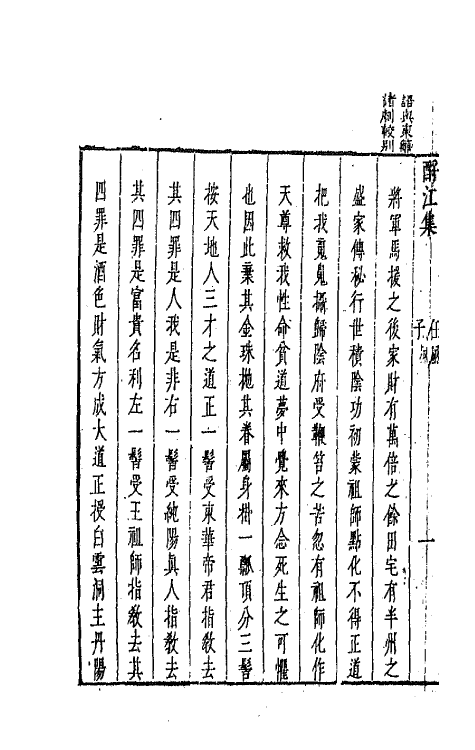 語與東籬
諸劇較別
酹江集
任風
子
一
將軍馬援之後家財有萬倍之餘田宅有半州之
盛家傳秘行世積陰功初蒙祖師點化不得正道
把我䰟鬼攝歸陰府受鞭笞之苦忽有祖師化作
天尊救我性命貧道夢中覺來方念死生之可懼
也因此棄其金珠拋其眷屬身掛一瓢頂分三髻
按天地人三才之道正一髻受東華帝君指教去
其四罪是人我是非右一髻受純陽真人指教去
其四罪是富貴名利左一髻受王祖師指教去其
四罪是酒色財氣方成大道正授白雲洞主丹陽